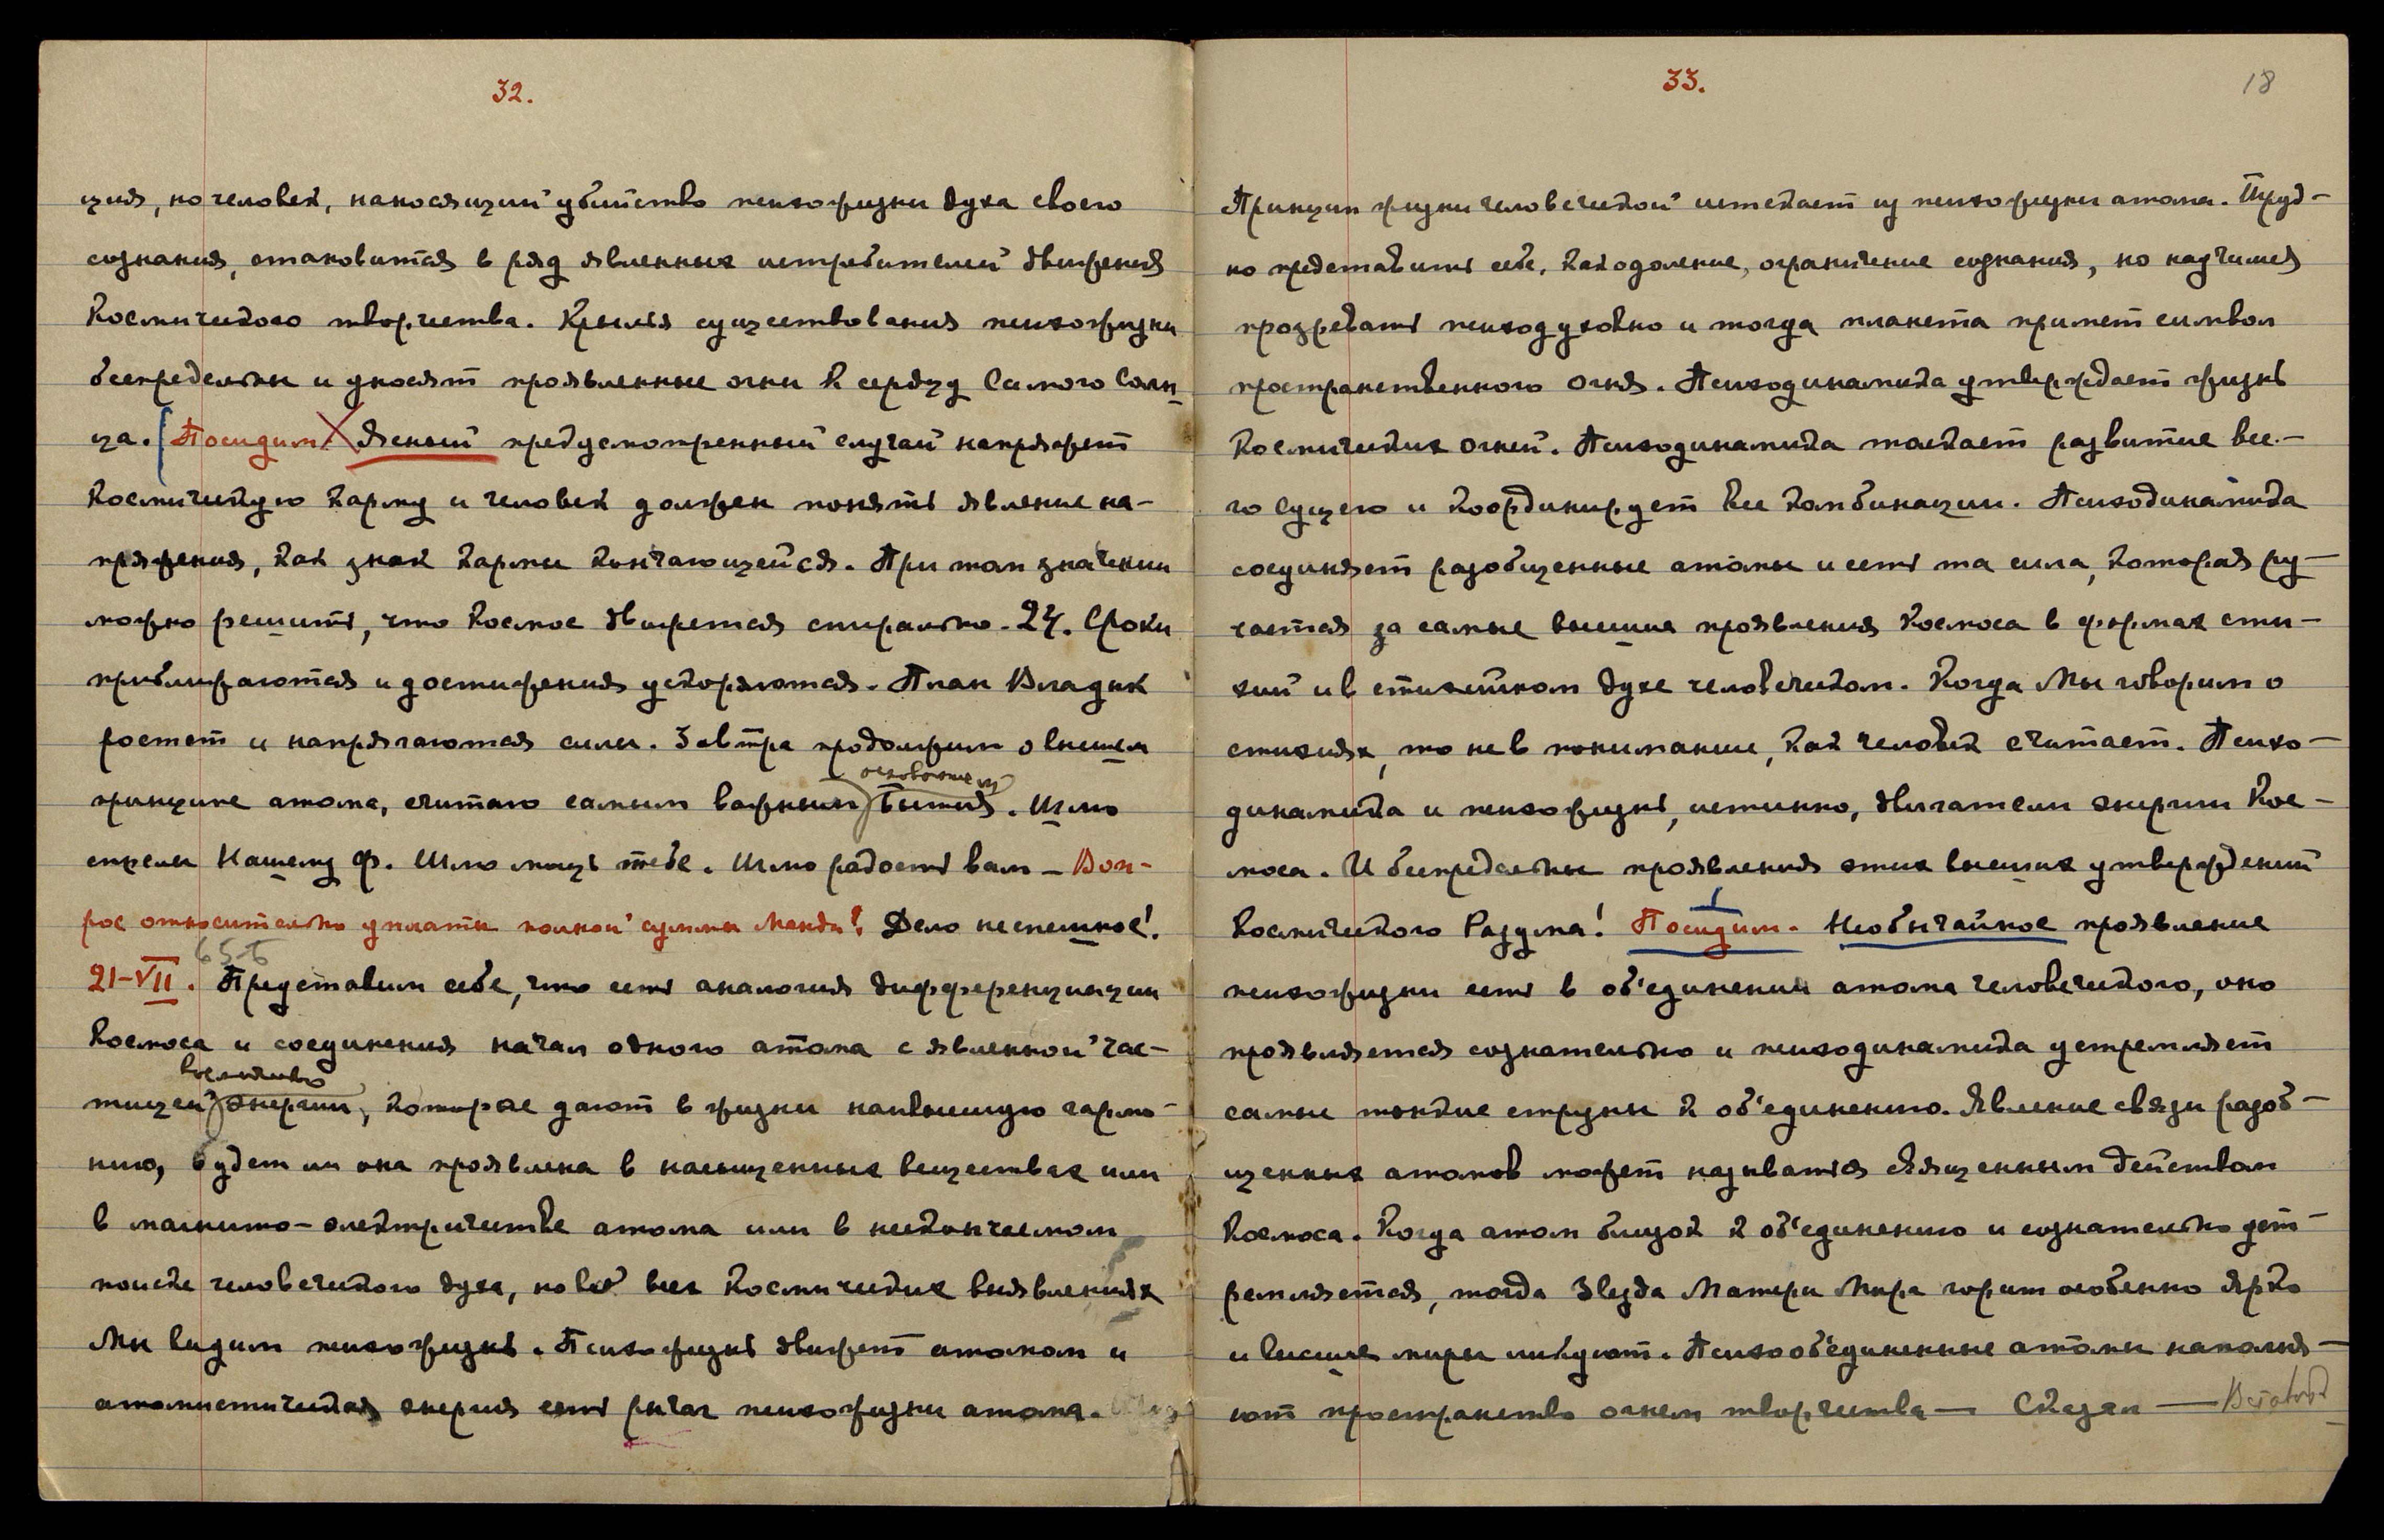 32.
ция, но человек, наносящий убийство психожизни духа своего
сознания, становится в ряд явленных истребителей движения
Космического творчества. Крылья существования психожизни
беспредельны и уносят проявленные огни к сердцу Самого Солн
ца. Посидим. Ясный предусмотренный случай напряжет
Космическую Карму и человек должен понять явление на-
пряжения, как знак Кармы Кончающейся. При том значении
можно решить, что Космос движется спирально. 24. Сроки
приближаются и достижения ускоряются. План Владык
ростет и напрягаются силы. Завтра продолжим о высшем
основание
принципе атома, считаю самым важным Бытия. Шлю
стрелы Нашему Ф. Шлю мощь тебе. Шлю радость вам – Воп-
рос относительно уплаты полной суммы Менди? Дело неспешное!
65-Б
21-VII. Представим себе, что есть аналогия дифференциации
Космоса и соединения начал одного атома с явленной час-
тицей энергии, которые дают в жизни наивысшую гармо-
нию, будет ли она проявлена в насыщенных веществах или
в магнито-электричестве атома или в нескончаемом
поиске человеческого духа, но во всех Космических выявлениях
Мы видим психожизнь. Психожизнь движет атомом и
атомистическая энергия есть рычаг психожизни атома.
33.
18
Принцип жизни человеческой истекает из психожизни атома. Труд-
но представить себе, как одоление, ограничение сознания, но научимся
прозревать психодуховно и тогда планета примет символ
пространственного Огня. Психодинамика утверждает жизнь
Космических Огней. Психодинамика толкает развитие все-
го Сущего и координирует все комбинации. Психодинамика
соединяет разобщенные атомы и есть та сила, которая ру-
чается за самые высшия проявления Космоса в формах сти-
хий и в стихийном духе человеческом. Когда Мы говорим о
стихиях, то не в понимании, как человек считает. Психо-
динамика и психожизнь, истинно, двигатели энергии Кос-
моса. И беспредельны проявления этих высших утверждений
Космического Разума! Посидим. Необычайное проявление
психожизни есть в об'единении атома человеческого, оно
проявляется сознательно и психодинамика устремляет
самые тонкие струны к об'единению. Явление связи разоб-
щенных атомов может называться Священным Действом
Космоса. Когда атом близок к об'единению и сознательно уст-
ремляется, тогда Звезда Матери Мира горит особенно ярко
и высшие миры ликуют. Психооб'единенные атомы наполня-
ют пространство огнем творчества — Сказал —